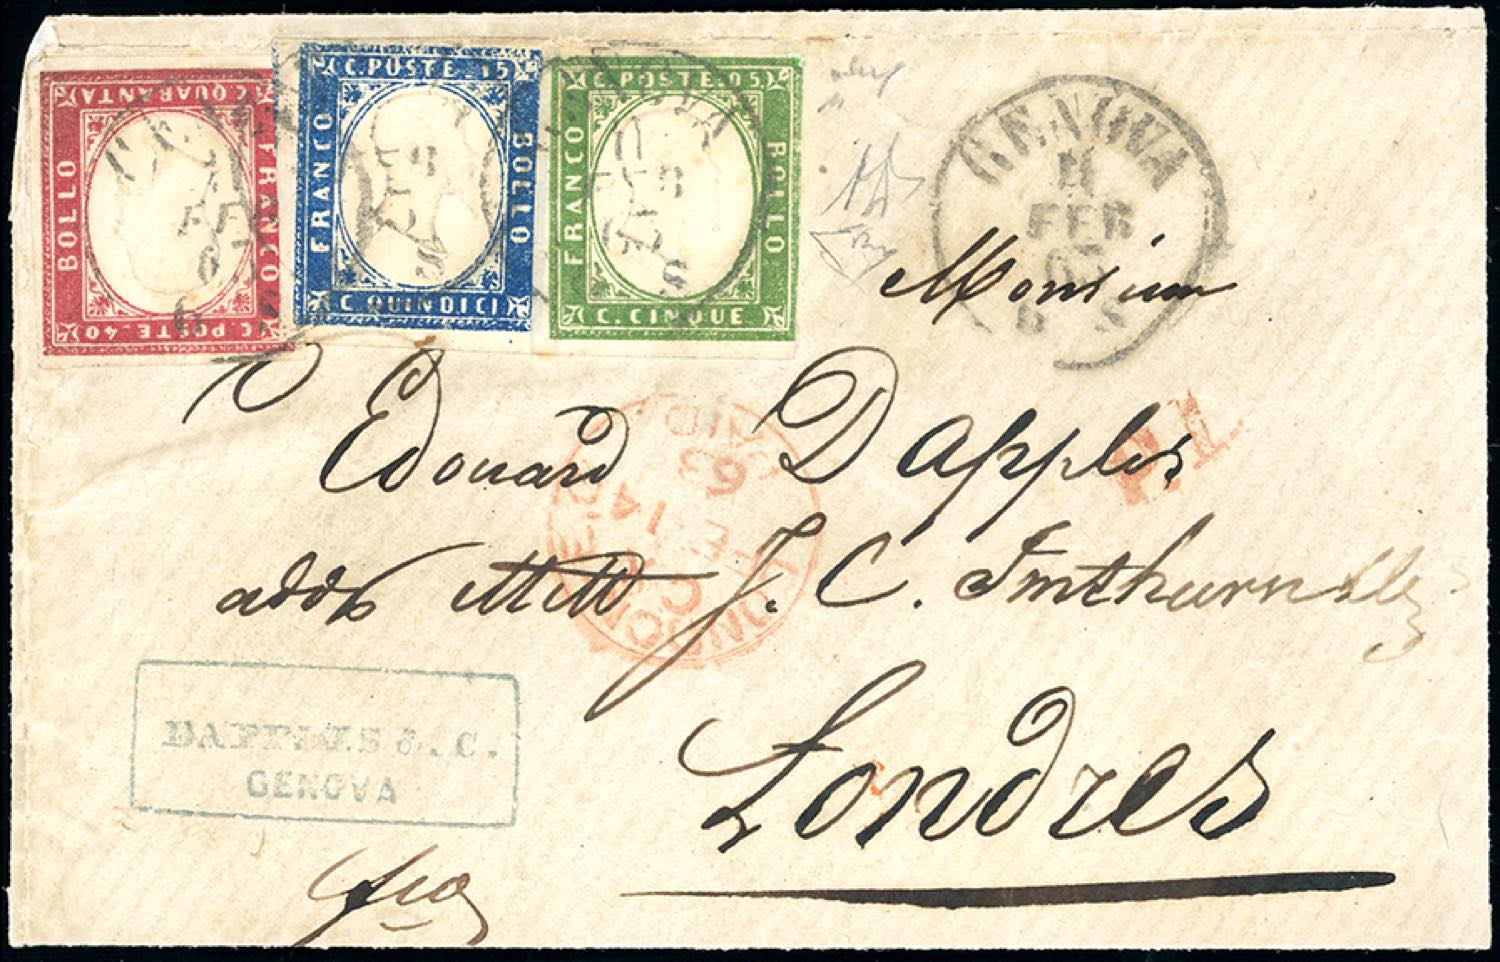 C. QUARANTA
FRANCO
BOLLO
C. POSTE. 40
C. POSTE. 15
FRANCO
BOLLO
C. QUINDICI
C. POSTE. 05
FRANCO
BOLLO
C. CINQUE
GENOVA
11
FEB
63
S
Monsieur
Edouard Dapples
J. C. Imthurn
Londres
P.D.
LONDON
PAID
63
14
DAPPLES & C.
GENOVA